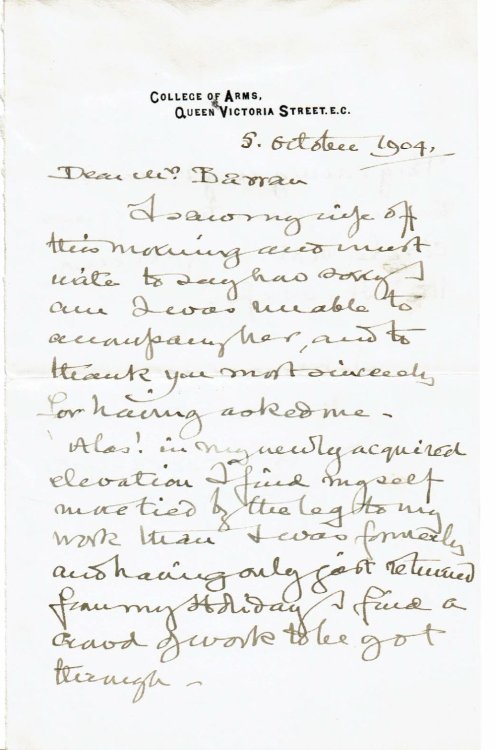 COLLEGE OF ARMS,
QUEEN VICTORIA STREET. E.C.
5. October 1904.
Dear Mrs Barran
I saw my wife off
this morning and must
write to say how sorry I
am I was unable to
accompany her, and to
thank you most sincerely
for having asked me -
Alas! in my newly acquired
elevation I find myself
more tied by the leg to my
work than I was formerly
and having only just returned
from my Holiday I find a
crowd of work to be got
through -